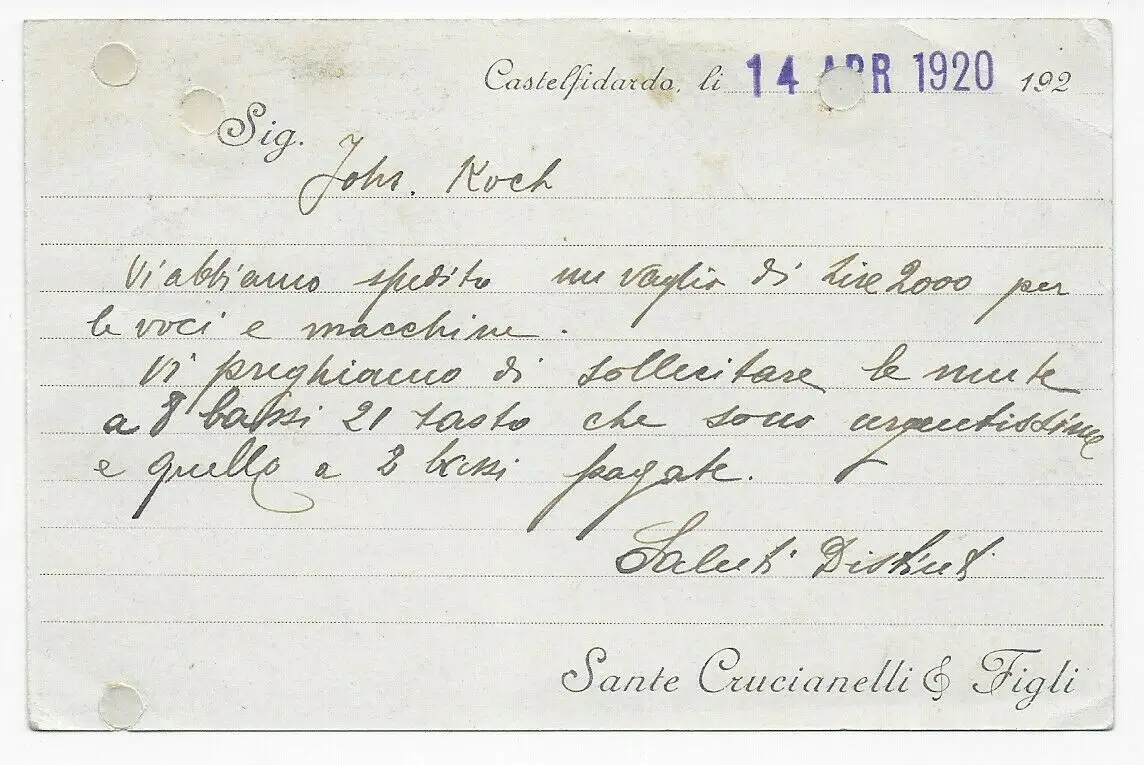 Castelfidardo, li 14 APR 1920 192
Sig.
Johs. Koch
Vi abbiamo spedito un vaglio di Lire 2000 per
le voci e macchine.
Vi preghiamo di sollecitare le mute
a 8 bassi 21 tasto che sono urgentissime
e quelle a 2 bassi pagate.
Saluti Distinti
Sante Crucianelli & Figli